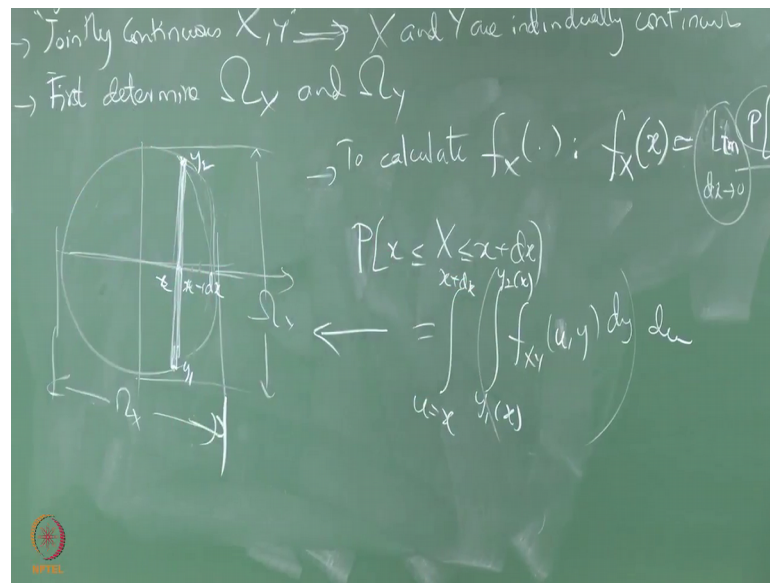 → "Jointly continuous X,Y" ⟹ X and Y are individually continuous
→ First determine Ω_X and Ω_Y
→ To calculate f_X(·): f_X(x) = Lim P[
dx→0
P[x ≤ X ≤ x+dx]
= ∫_{u=x}^{x+dx} ( ∫_{y_1(x)}^{y_2(x)} f_{XY}(u,y) dy ) du
y_2
x x+dx
Ω_Y
y_1
Ω_X
NPTEL